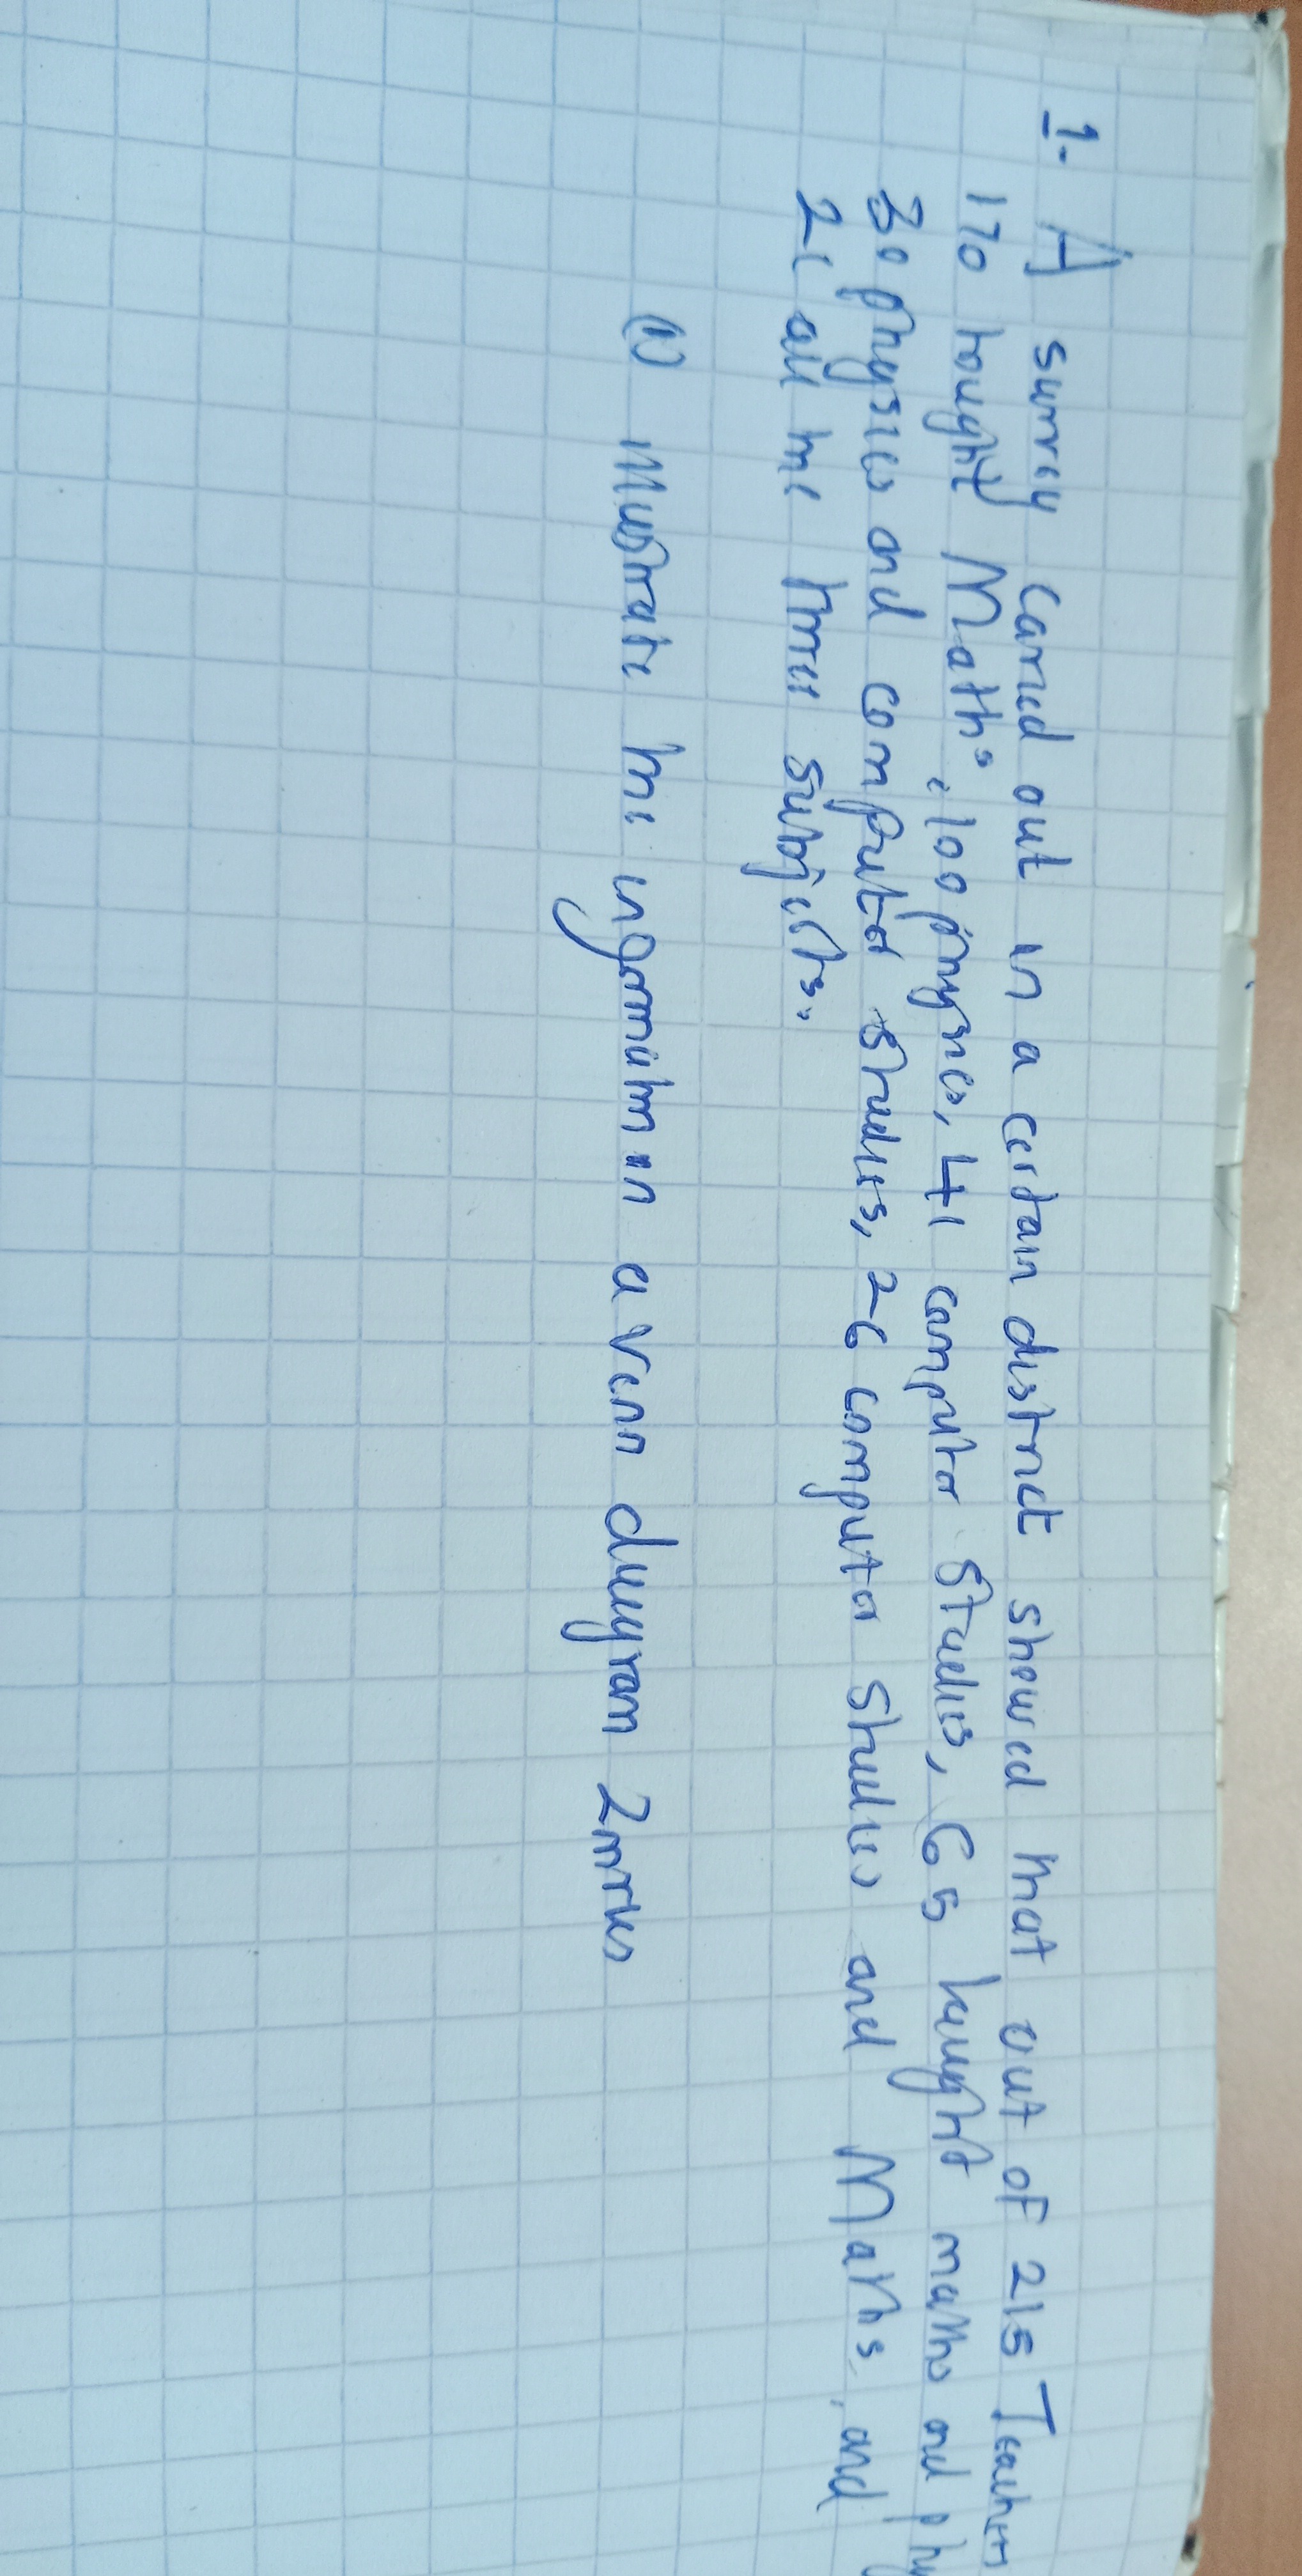 1. A survey carried out in a certain district showed that out of 215 Teachers
170 taught Maths, 100 physics, 41 computer studies, 65 taught maths and phy
30 physics and computer studies, 26 computer studies and Maths, and
21 all the three subjects.
(i) Illustrate the information on a venn diagram 2mrks